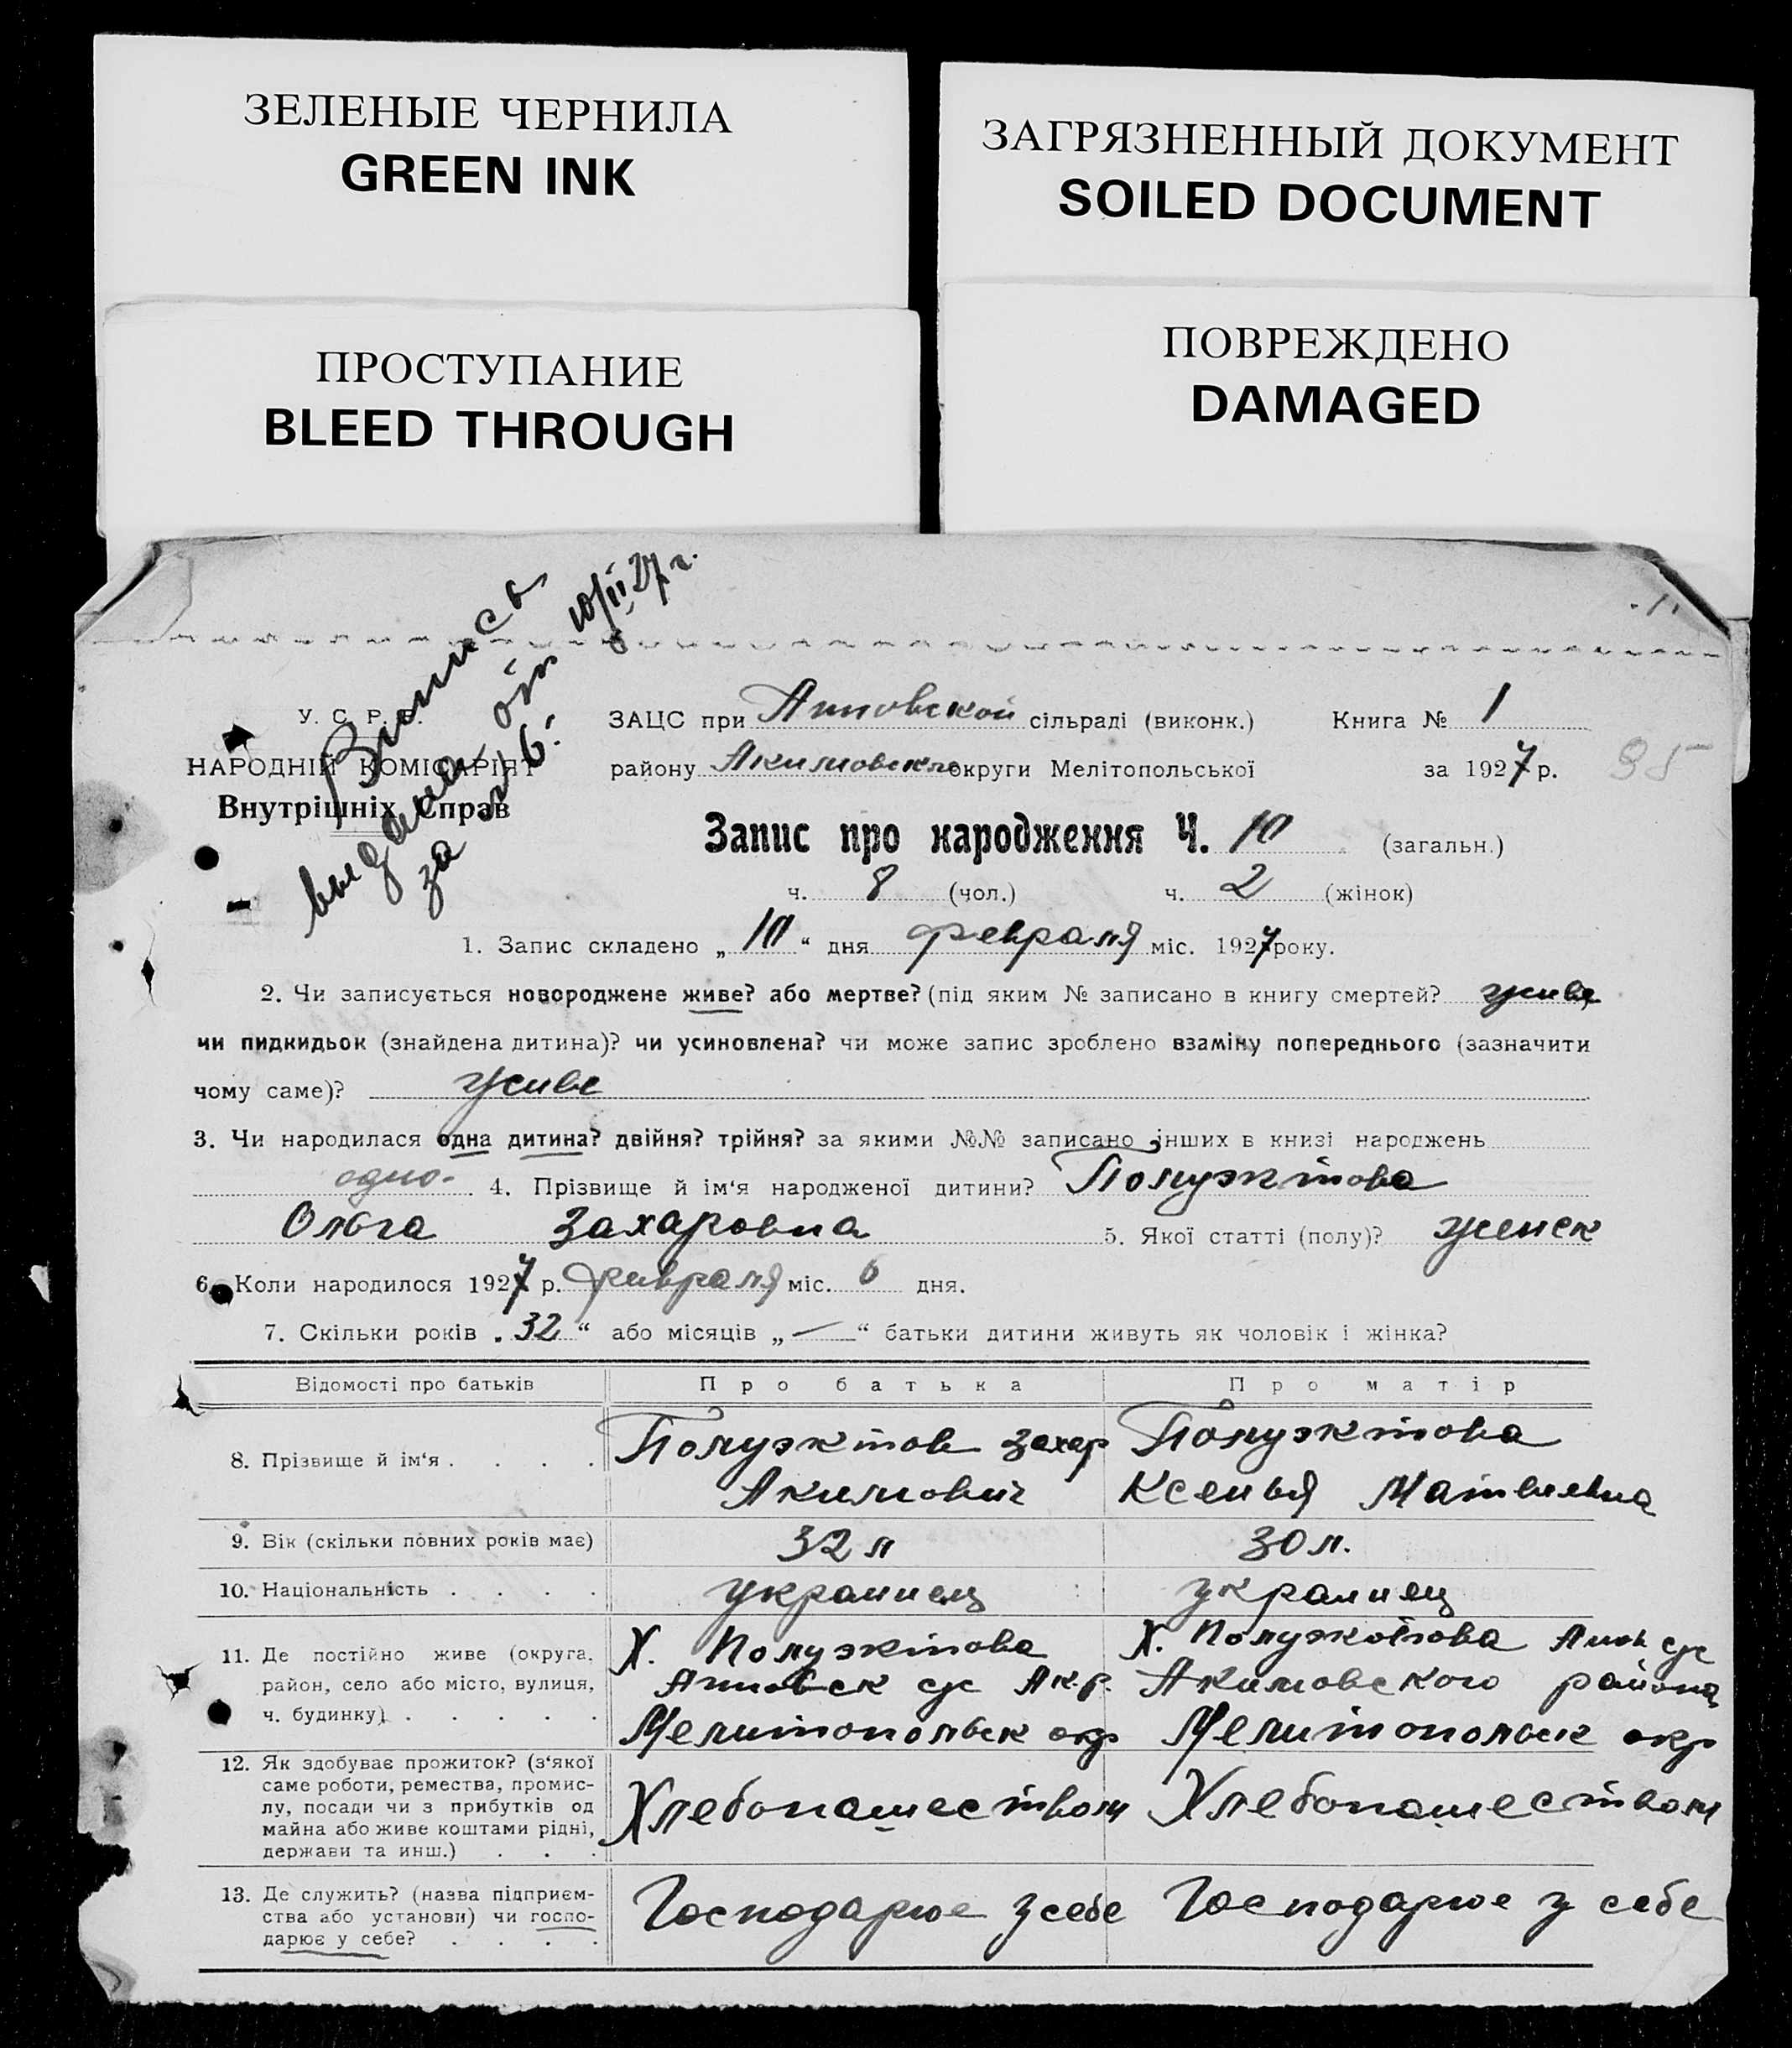 ЗЕЛЕНЫЕ ЧЕРНИЛА
GREEN INK
ЗАГРЯЗНЕННЫЙ ДОКУМЕНТ
SOILED DOCUMENT
ПРОСТУПАНИЕ
BLEED THROUGH
ПОВРЕЖДЕНО
DAMAGED
Выпись
выдана от 10/II 27 г.
за № 6.
У. С. Р. Р.
НАРОДНІЙ КОМІСАРІЯТ
Внутрішніх Справ
ЗАЦС при Анновской сільраді (виконк.) Книга № 1
району Акимовск округи Мелітопольської за 1927 р. 35
Запис про народження Ч. 10 (загальн.)
ч. 8 (чол.) ч. 2 (жінок)
1. Запис складено „10“ дня февраля міс. 1927 року.
2. Чи записується новороджене живе? або мертве? (під яким № записано в книгу смертей? живе,
чи пидкидьок (знайдена дитина)? чи усиновлена? чи може запис зроблено взаміну попереднього (зазначити
чому саме)? живе
3. Чи народилася одна дитина? двійня? трійня? за якими №№ записано інших в книзі народжень
одно. 4. Прізвище й ім‘я народженої дитини? Полуэктова
Ольга Захаровна 5. Якої статті (полу)? женск
6. Коли народилося 1927 р. февраля міс. 6 дня.
7. Скільки років „32“ або місяців „—“ батьки дитини живуть як чоловік і жінка?
Відомості про батьків Про батька Про матір
8. Прізвище й ім‘я . . . . Полуэктов Захар Полуэктова
Акимович Ксенья Матвиевна
9. Вік (скільки повних років має) 32 л 30 л.
10. Національність . . . . украинец украинец
11. Де постійно живе (округа, Х. Полуэктова Х. Полуэктова Анов с/с
район, село або місто, вулиця, Анновск с/с Ак.р. Акимовского района
ч. будинку) . . . . . Мелитопольск окр Мелитопольск окр
12. Як здобуває прожиток? (з‘якої
саме роботи, ремества, промис-
лу, посади чи з прибутків од Хлебопашеством Хлебопашеством
майна або живе коштами рідні,
держави та инш.) . . .
13. Де служить? (назва підприєм-
ства або установи) чи госпо- Господарює у себе Господарює у себе
дарює у себе? . . . .